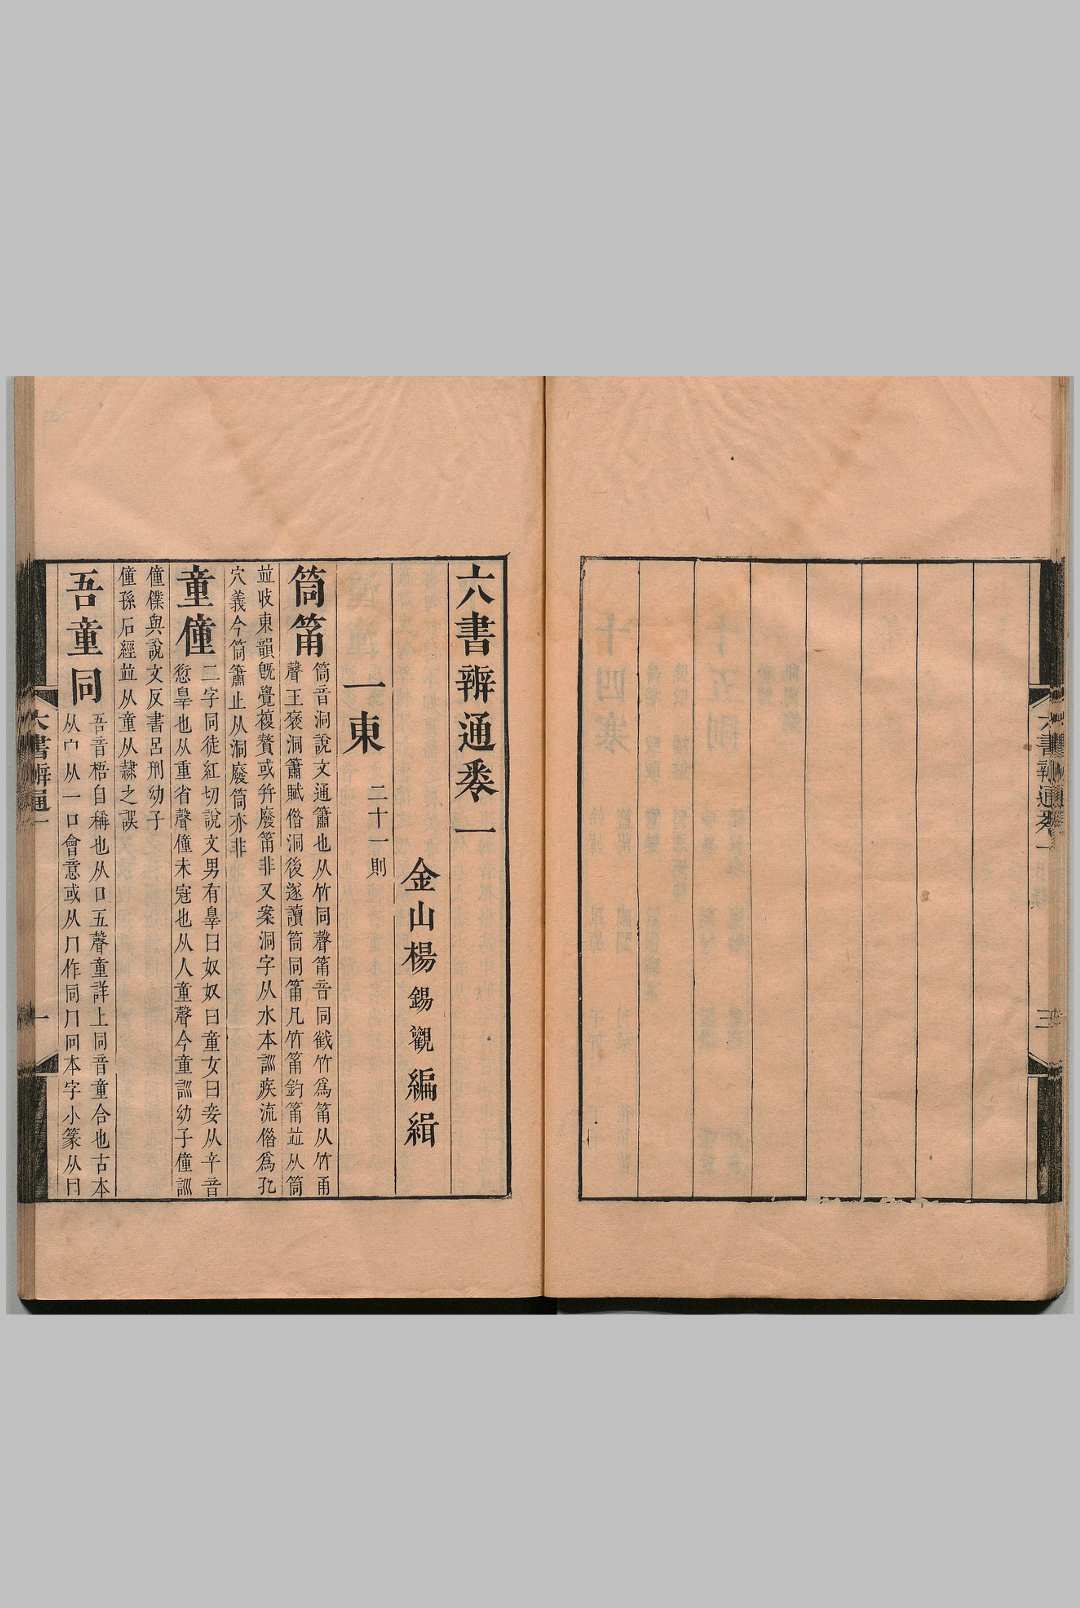 六書辨通卷一
三
六書辨通卷一
金山楊錫觀編緝
一東 二十一則
筒筩 筒音洞說文通簫也从竹同聲筩音同㦸竹爲筩从竹甬
聲王褒洞簫賦俗洞後遂讀筒同筩凡竹筩釣筩並从筒
並收東韻旣覺複贅或幷廢筩非又案洞字从水本訓疾流俗爲孔
穴義今筒簫止从洞廢筒亦非
童僮 二字同徒紅切說文男有辠曰奴奴曰童女曰妾从辛音
愆辠也从重省聲僮未冠也从人童聲今童訓幼子僮訓
僮僕與說文反書呂刑幼子
僮孫石經並从童从隸之誤
吾童同 吾音梧自稱也从口五聲童詳上同音童合也古本
从宀从一口會意或从冂作同冂同本字小篆从曰
六書辨通
一